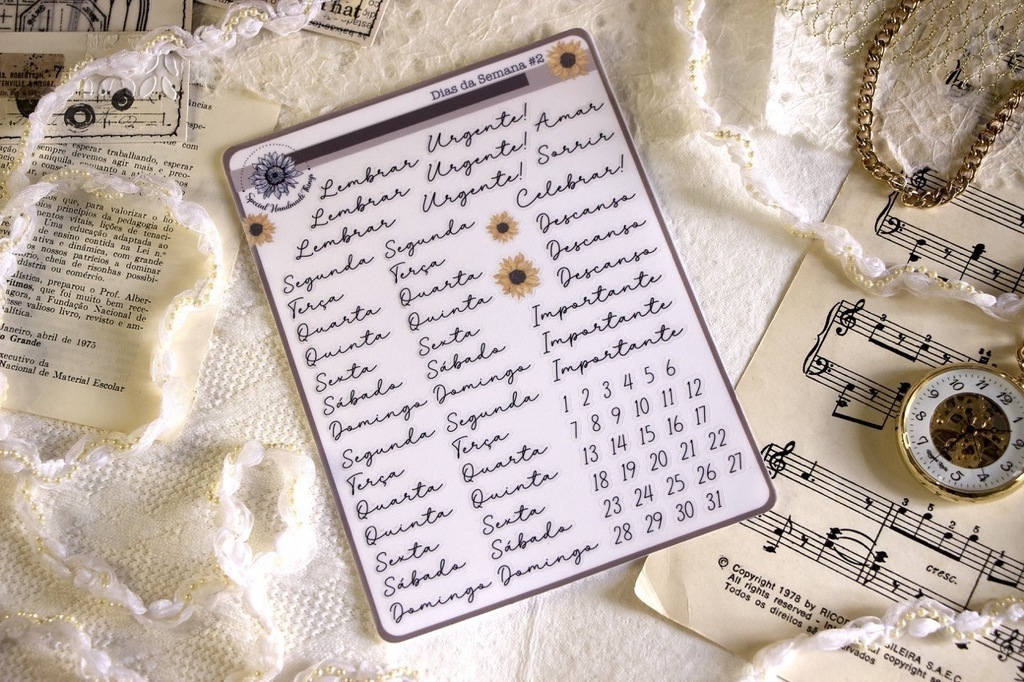 that
Dias da Semana #2
Special Handmade Things
Lembrar Urgente! Amar
Lembrar Urgente! Sorrir
Lembrar Urgente! Celebrar!
Segunda Segunda Descanso
Terça Terça Descanso
Quarta Quarta Descanso
Quinta Quinta Importante
Sexta Sexta Importante
Sábado Sábado Importante
Domingo Domingo
Segunda Segunda
Terça Terça
Quarta Quarta
Quinta Quinta
Sexta Sexta
Sábado Sábado
Domingo Domingo
1 2 3 4 5 6
7 8 9 10 11 12
13 14 15 16 17
18 19 20 21 22
23 24 25 26 27
28 29 30 31
esperar trabalhando, esperar
devemos agir mais e
aniquila,
que, para valorizar o
princípios da pedagogia do
vitais, lições de tenaci-
Uma educação adaptada ao
de ensino contida na Lei n.º
ativa e dinâmica, com grande
nossos patrícios a dominar
cheia de risonhas possibi-
dústria ou comércio.
preparou o Prof. Alber-
ritmos, que foi muito bem rece-
agora, a Fundação Nacional de
esse valioso livro, revisto e am-
Janeiro, abril de 1975
Grande
executivo da
Nacional de Material Escolar
cresc.
© Copyright 1978 by
All rights reserved
Todos os direitos
S.A.E.C.
copyright